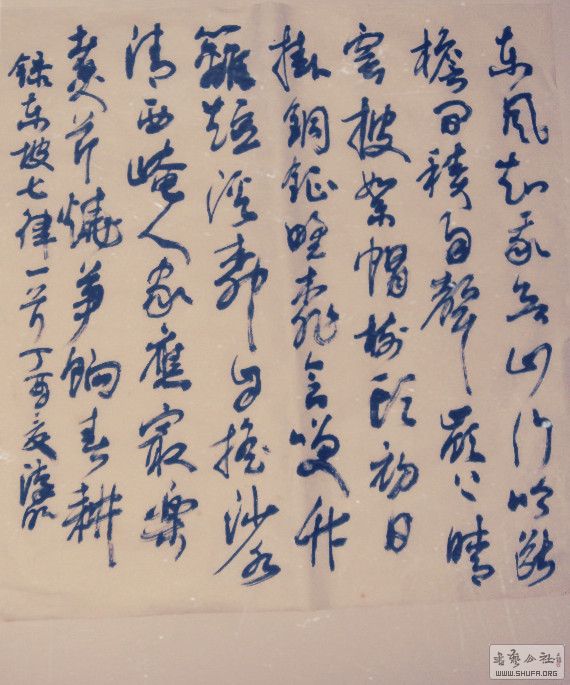 东風知我欲山行吹断
檐间積雨聲嶺上晴
雲披絮帽樹頭初日
掛銅鉦野桃含笑竹
籬短溪柳自摇沙水
清西崦人家應最樂
煮芹燒笋餉春耕
録东坡七律一首丁酉夏
书艺公社
WWW.SHUFA.ORG